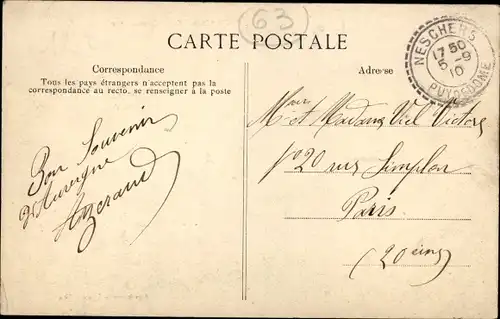 63
CARTE POSTALE
Correspondance
Tous les pays étrangers n'acceptent pas la
correspondance au recto, se renseigner à la poste
Adresse
NESCHERS
17 50
5 - 9
10
PUY-DE-DOME
Bon Souvenir
d'Auvergne
et Madame Viel Victor
20 rue Simplon
Paris
(20eme)